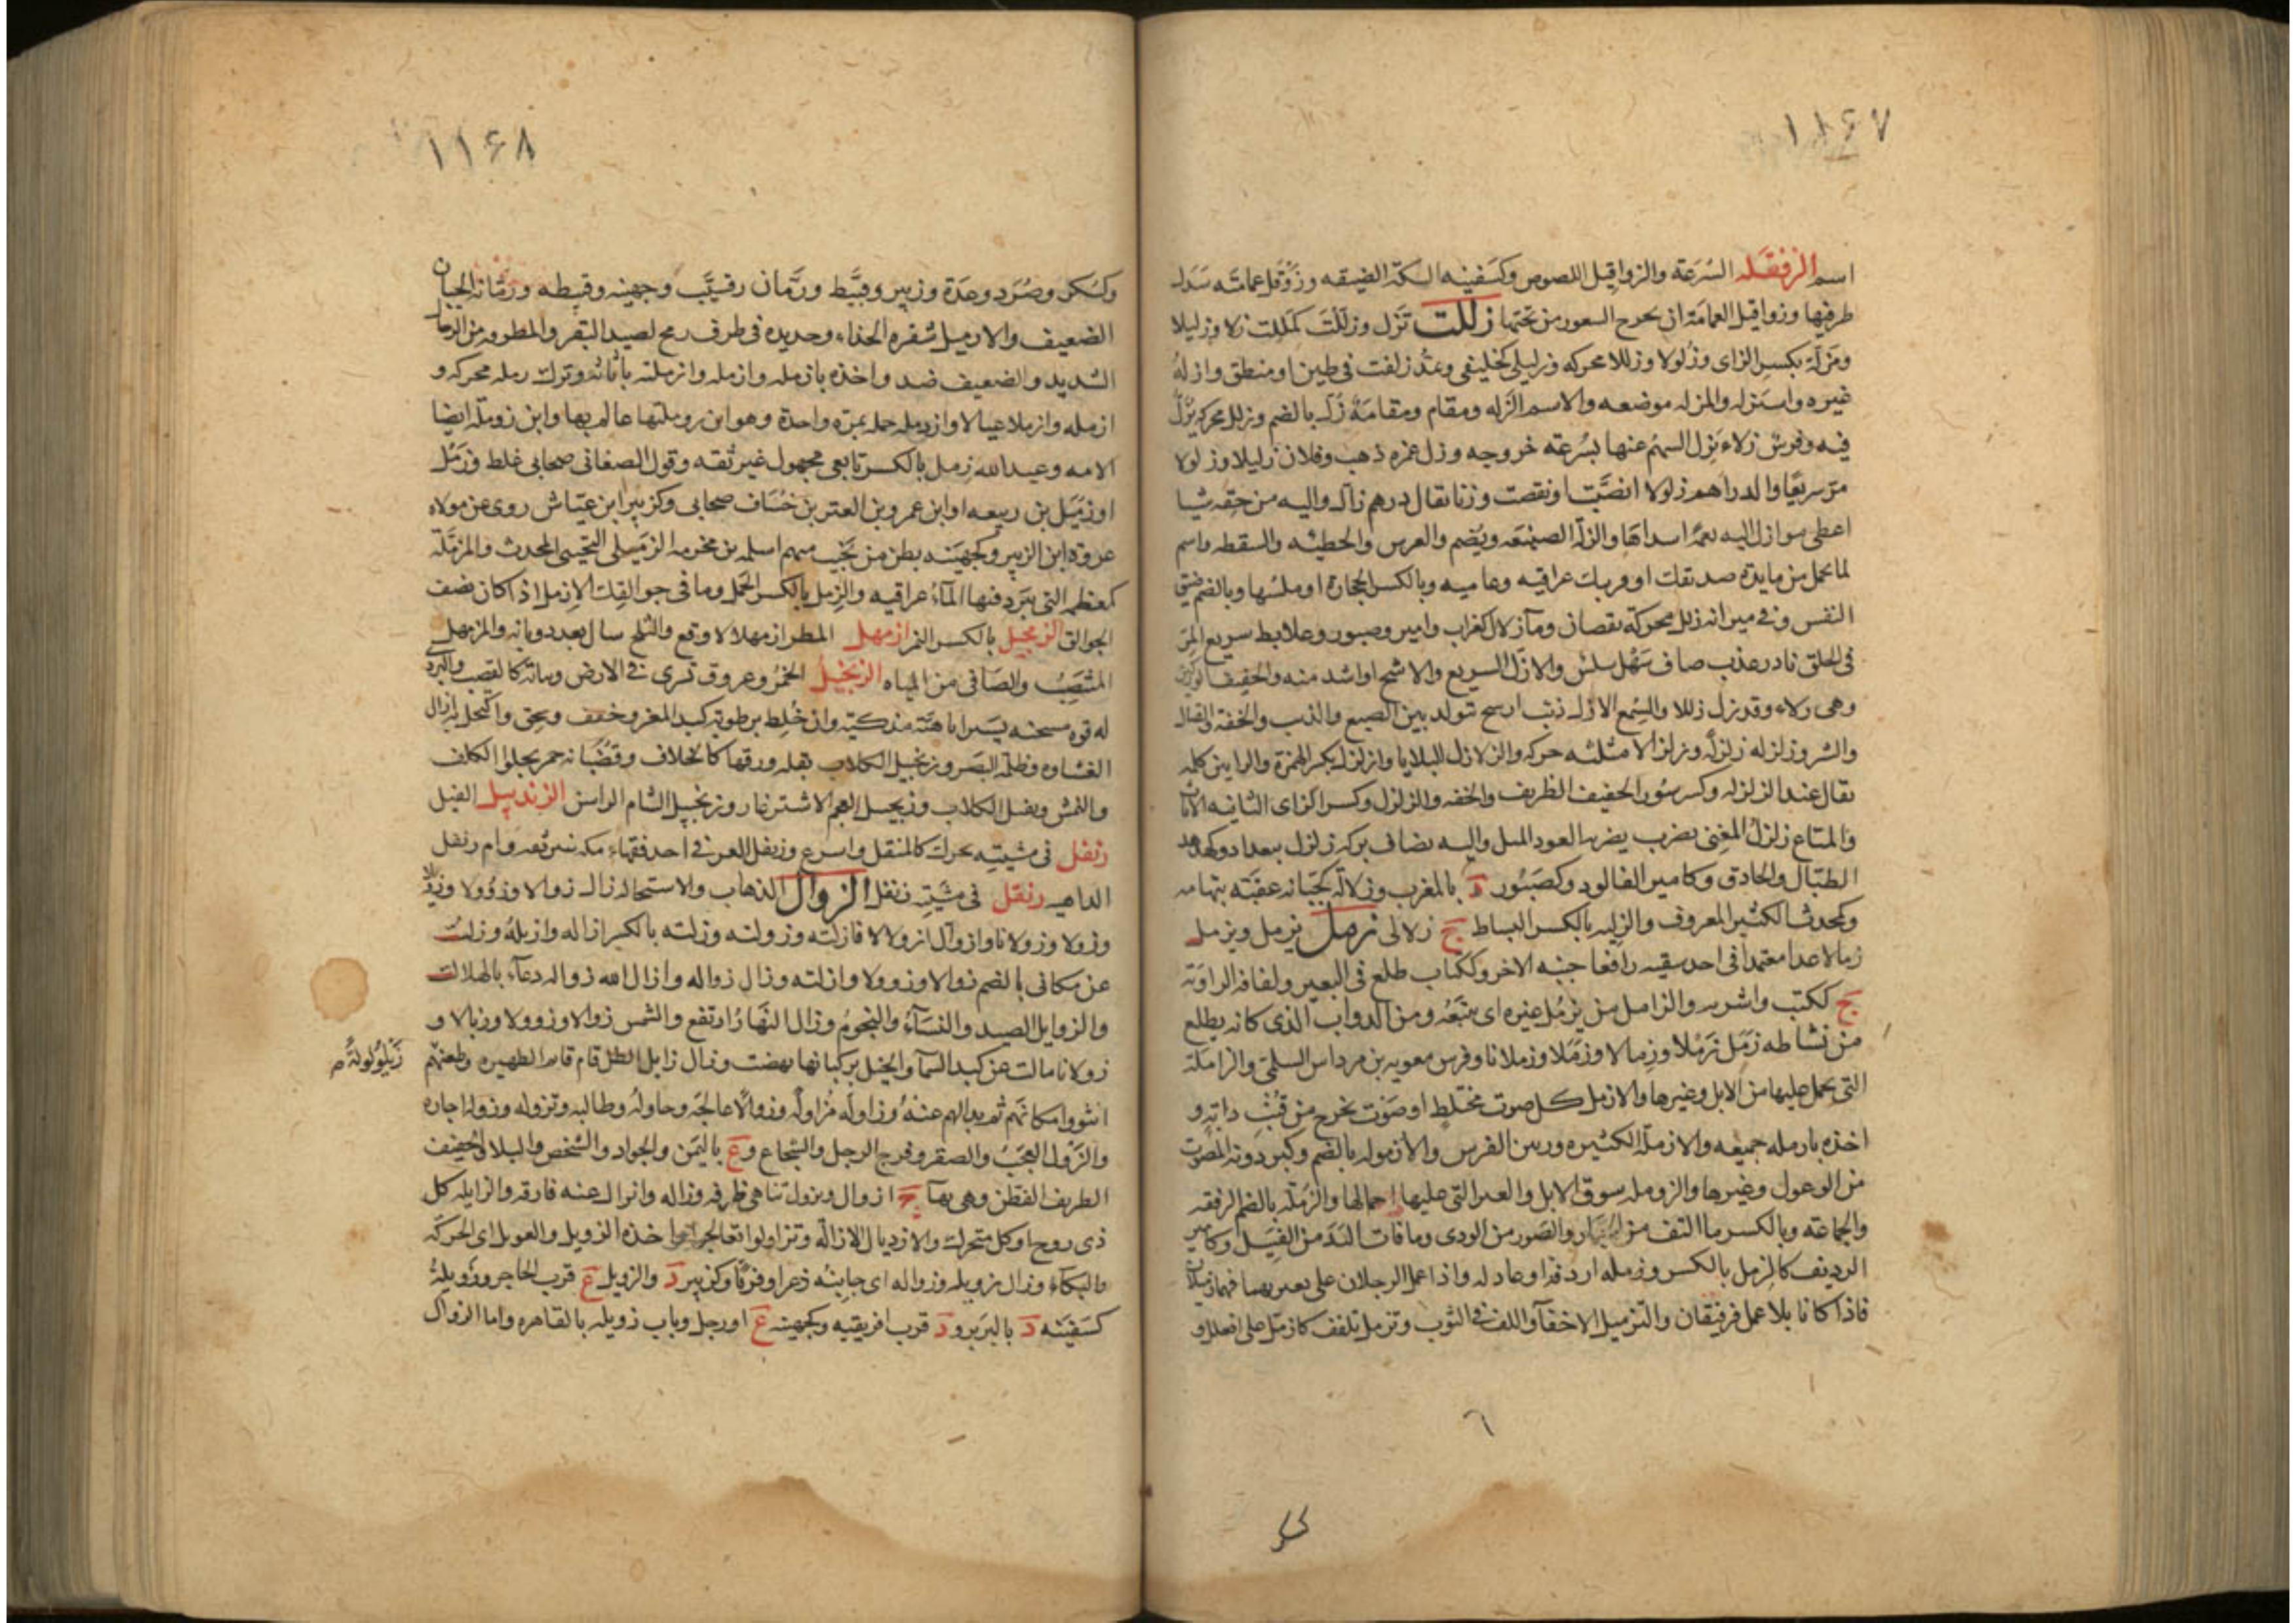 ١١۶٧
اسم الزفقله السُرعَة والزواقيل اللصوص وكسفينه السكّة الضيقه وزَوْقَل عمامتَه سَدَل
طرفيها وزواقيل العمامَة ان يخرج الشعور من تحتها زللت تَزِل وزَلِلْتَ كمَلِلت زلا وزليلا
ومَزلَّة بكسر الزاى وزُلولا وزللا محركه وزليلى كخليفى ويمدّ زلقت فى طين او منطق وازلهُ
غيره واستزله والمزله موضعه والاسم الزَله ومقام ومقامَة زُل بالضم وزلل محركه يُزَلّ
فيه وقوس زلاء يَزِل السهمُ عنها بسُرعَة خروجه وزل عمره ذهب وفلان زليلا وزلولا
مرّ سريعًا والدراهم زلولا انصَّبت او نقصت وزنا يقال درهم زال واليه من حقه شيا
اعطى سوازل اليه نعمة اسداها والزلّة الصنيعَه ويُضم والعرس والخطيئه والسقطه واسم
لما يحمل من مايدة صديقك او قريبك عراقيه وعاميه وبالكسر الحجارة او ملسُها وبالضم ضيق
النفس وفى ميزانه زلل محركة نقصان ومآ زلال كغراب وامير وصبور وعلابط سريع المرّ
فى الحلق بارد عذب صاف سَهْل سلس والازَلّ السريع والاشح او اشد منه والخفيف الوركين
وهى زلاء وقد زل زللا والسِّمع الازلّ ذئب ارسح يتولد بين الضبع والذئب والخفة والقتال
والشر وزلزله زلزلة وزلزالا مثلثه حركه والزلازل البلايا وازلزل بكسر الهمزة والزايين كلمه
تقال عند الزلزله وكسرسُور الخفيف الظريف والخفه والزلزل وكسر الزاى الثانيه الاثاث
والمتاع زلزلُ المغِنى بضرب يضربه العود المثل واليه تضاف بركه زلزل ببغداد وكهدهد
الطبّال والحاذق وكامير الفالوذ وكصَبُور د بالمغرب وزلالَة كجَبّانه عقبَة بتهامه
وكمحدث الكثير المعروف والزليه بالكسر البساط ج زلالى زمل يزمل ويزمل
زمالا عدا معتمدا فى احد شقيه رافعا جنبه الاخر وككتاب ظلع فى البعير ولفافه الراوَيَة
ج ككتب واشربه والزامل من يزمُل غيره اى يتبَعُه ومن الدواب الذى كانه يظلع
من نشاطه زَمَل زَمْلًا وزِمالا وزَمَلا وزملانا وفرس معويه بن مرداس السلمىّ والزاملة
التى يحمل عليها من الابل وغيرها والازمل كل صوت مختلِط او صَوْت يخرج من قُنْب دابّةٍ و
اخذه بازمله جميعه والازملة الكثيره ورنين القوس والازموله بالضم وكبردونه المصوت
من الوعول وغيرها والزومله سوق الابل والعير التى عليها احمالها والزُملَة بالضم الرفقه
والجماعَة وبالكسر ما التف من الجبّار والصَور من الودى وما فات اليَد من الفَسِيل وكامير
الرديف كالزمل بالكسر وزمله اردفه او عادله واذا عمل الرجلان على بعيريهما فهما زميلان
فاذا كانا بلا عمل فرفيقان والتزميل الاخفآ واللف فى الثوب وتزمل تلفف كازمّل على افعلل و
١١۶٨
وكسُكر وصُرَد وعِدَة وزبير وقبَّيط ورُمَّان وقِسْيَب وجهينه وقبيطه ورُمّانة الجبان
الضعيف والازميل شفره الحذاء وحديده فى طرف رمح لصيد البقر والمطرقه من الرجال
الشديد والضعيف ضد واخذه بازمله وازمله وازملته باثاثه وترك زمله محركه و
ازمله وازملا عيالا وازدمله حمله بمرّه واحدة وهو ابن زوملتها عالم بها وابن زوملة ايضا
الامه وعبد الله زِمل بالكسر تابعى مجهول غير ثقه وقول الصغانى صحابى غلط وزمْل
او زميل بن ربيعه او ابن عمرو بن العتر بن خُشَاف صحابى وكزبير ابن عيّاش روى عن مولاه
عروة ابن الزبير وكجهينه بطن من تُجيب منهم اسلمه بن مخرمه الزميلى التجيبى المحدث والمزمّلَة
كمعظمه التى يبَرد فيها المآءُ عراقيه والزِمل بالكسر الحمل وما فى جوالِقِك الازمل اذا كان نصف
الجوالق الزمجيل بالكسر النمر ازمهل المطر ازمهلالا وقع والثلج سال بعد ذوبانه والمزمهل
المنتصَبُ والصَافى من المياه الزنجَبيل الخمرُ وعروق تسرى فى الارض ونباته كالقصب والبردى
له قوه مسخنه يسيرا باهيّة مذكّيَة وان خُلِط برطوبة كبد المعز وجفف وسحق واكتحل به ازال
الغشاوه وظلمة البَصر وزنجبيل الكلاب بقله ورقها كالخلاف وقضْبانه حمر يجلوا الكلف
والنمش ويقتل الكلاب وزنجبيل العجم الاشترغار وزنجبيل الشام الراسن الزندبيل الفيل
زنفل فى مشيته تحرك كالمثقل واسرع وزنفل العرفى احد فقهاء مكه ليس بثقه وام زنفل
الداهيه زنقل فى مَشْيَتِه زنفل الزوال الذهاب والاستحاله زال زوالا وزُوُولا وزَويلا
وزولا وزولانا وازوآل ازولالا فازلته وزولته وزلته بالكسر ازاله وازيلهُ وزلتُ
عن مكانى بالضم زوالا وزوولا وازلته وزال زواله وازال الله زواله دعآء بالهلاك
والزوايل الصيد والنسَآءُ والنجومُ وزال النَّهارُ ارتفع والشمس زوالا وزوولا وزيالا و
زولانا مالت عن كبد السمآ والخيل بركبانها نهضت وزال زايل الظل قام قايم الظهيره وظعنهم
زَيْلُولولةً صح
ائتووا مكانَهُم ثم بدالهم عنهُ وزاولَه مُزاولَة وزوالًا عالجَه وحاولهُ وطالبه وتزوله وزوله اجاده
والزَوْل العجَبُ والصقر وفرج الرجل والشجاع وع باليَمن والجواد والشخص والبلاء والخفيف
الظريف الفطن وهى بهآ ج ازوال وتزول تناهى ظرفه وزاله وانزال عنه فارقه والزايله كل
ذى روح او كل متحرك والازديال الازالة وتزاولوا تعالجوا اخذه الزويل والعويل اى الحركَة
والبكآء وزال زويله وزواله اى جانبُه ذعرا وفرقًا وكزبير د والزويل ع قرب الحاجر وزويلةُ
كسَفينه د بالبَربر ود قرب افريقيه وكجهينه ع او رجل وباب زويله بالقاهره واما الزوال